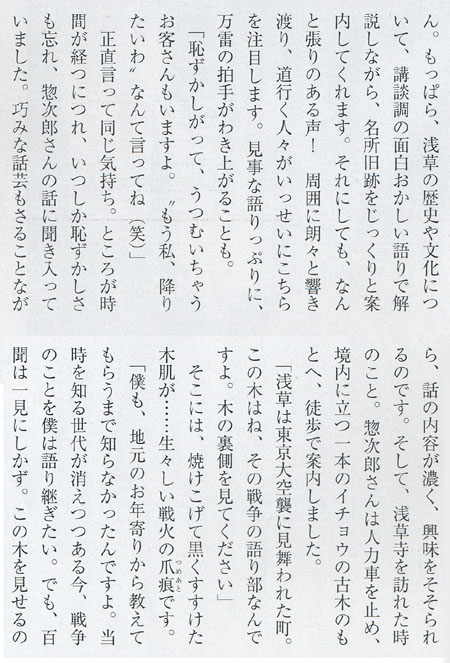 ん。もっぱら、浅草の歴史や文化につ
いて、講談調の面白おかしい語りで解
説しながら、名所旧跡をじっくりと案
内してくれます。それにしても、なん
と張りのある声！　周囲に朗々と響き
渡り、道行く人々がいっせいにこちら
を注目します。見事な語りっぷりに、
万雷の拍手がわき上がることも。
「恥ずかしがって、うつむいちゃう
お客さんもいますよ。〝もう私、降り
たいわ〟なんて言ってね（笑）」
　正直言って同じ気持ち。ところが時
間が経つにつれ、いつしか恥ずかしさ
も忘れ、惣次郎さんの話に聞き入って
いました。巧みな話芸もさることなが
ら、話の内容が濃く、興味をそそられ
るのです。そして、浅草寺を訪れた時
のこと。惣次郎さんは人力車を止め、
境内に立つ一本のイチョウの古木のも
とへ、徒歩で案内しました。
「浅草は東京大空襲に見舞われた町。
この木はね、その戦争の語り部なんで
すよ。木の裏側を見てください」
　そこには、焼けこげて黒くすすけた
木肌が……生々しい戦火の爪痕です。
つめあと
「僕も、地元のお年寄りから教えて
もらうまで知らなかったんですよ。当
時を知る世代が消えつつある今、戦争
のことを僕は語り継ぎたい。でも、百
聞は一見にしかず。この木を見せるの